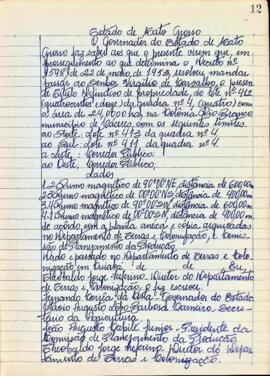 12
Estado de Mato Grosso
O Governador do Estado de Mato
Grosso faz saber aos que o presente virem que, em
prosseguimento ao que determina o Decreto nº
1598, de 22 de maio de 1953, resolveu mandar
passar ao Senhor de Carvalho, o presen
te Título Definitivo de propriedade, do lote nº 412
(quatrocentos e doze) da quadra nº 4, (quatro) com
a área de 24,0000 ha, na Colônia Rio Branco
município de Cáceres, com os seguintes limites.
ao Norte: lote nº 413 da quadra nº 4.
ao Sul: lote nº 411, da quadra nº 4.
a Leste: Corredor Público.
ao Oeste: Corredor Público.
Lados
1.2 Rumo magnético de 00°00'NE, distância de 600,00m.
2.3 Rumo magnético de 00°00'NS, distância de 400,00m.
3.4 Rumo magnético de 90°00'SW, distância de 600,00m.
4.1 Rumo magnético de 00°00'SN, distância de 400,00m.
de acôrdo, com a planta anexa e cópia, arquivadas
no Departamento de Terras e Colonização, e Comis-
são de Planejamento da Produção.
Dado e passado no Departamento de Terras e Colo-
nização em Cuiabá, de de Eu
Jorge Diretor do Departamento
de Terras e Colonização, o fiz escrever
Fernando Corrêa da Costa - Governador do Estado
Augusto Lopo Barbosa Secre-
tário da Agricultura
João Augusto Capilé Junior - Presidente da
Comissão de Planejamento da Produção
Jorge Diretor do Depar
tamento de Terras e Colonização.